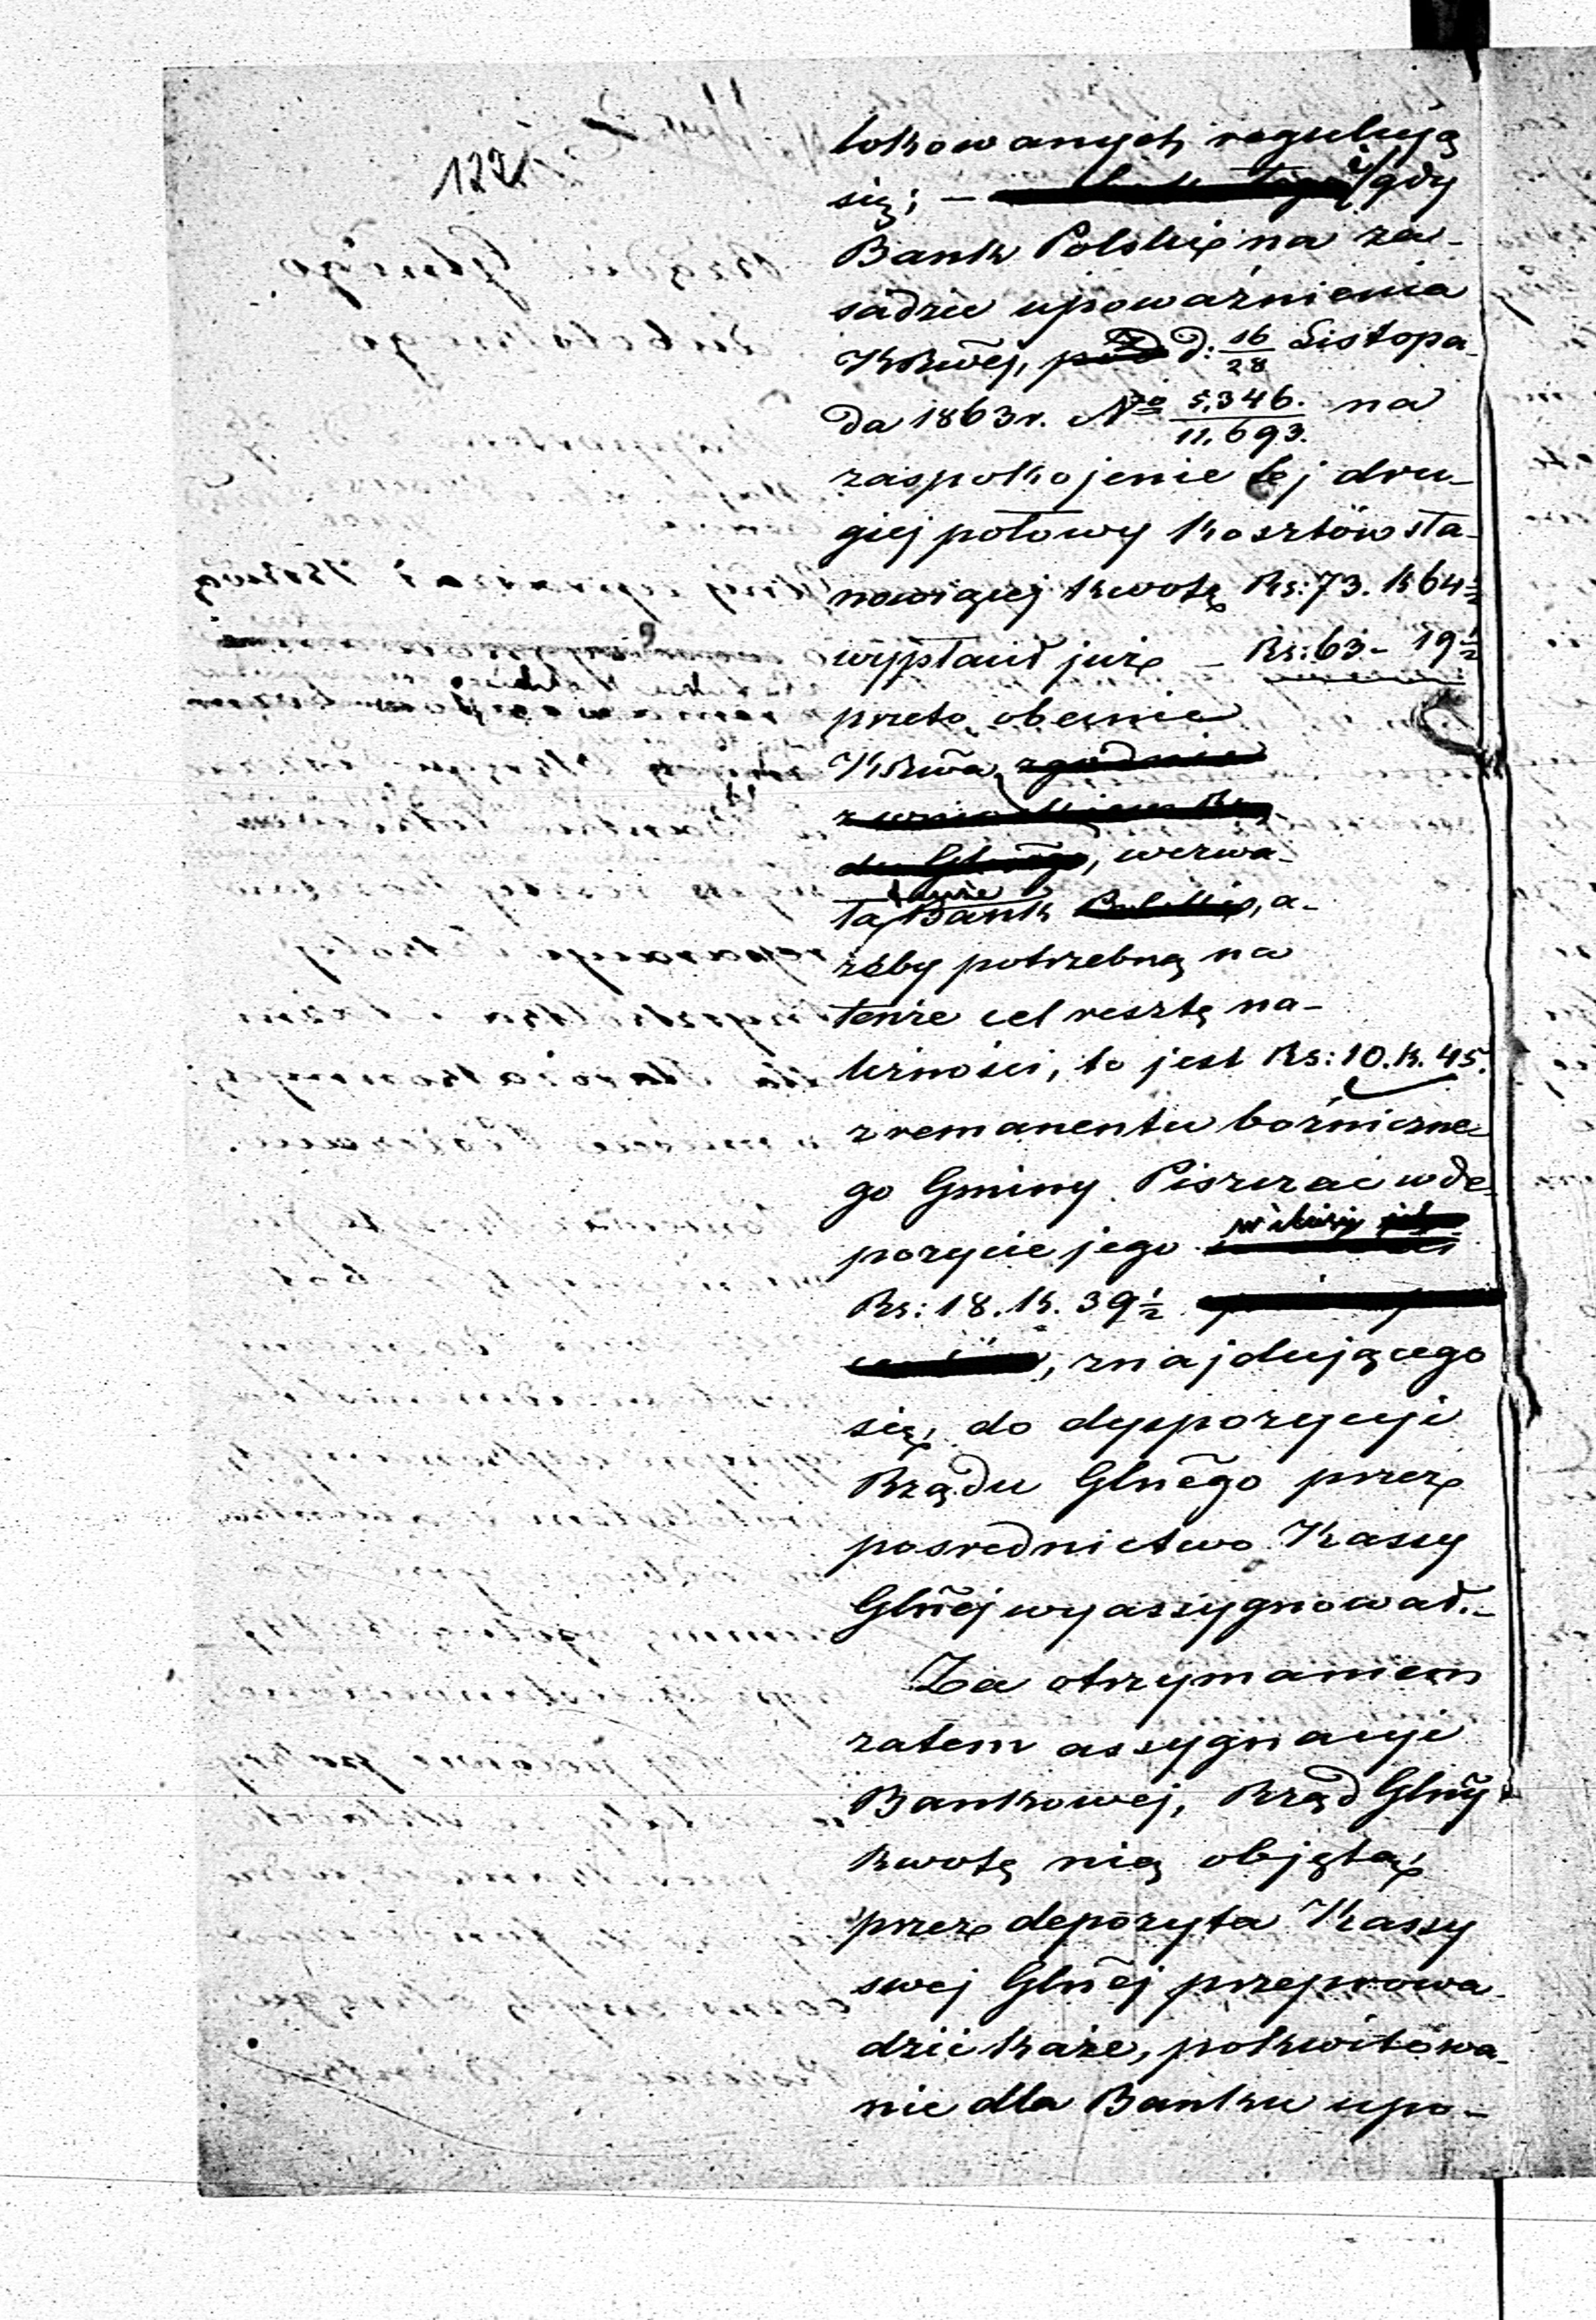 122
lokowanych regulują
się; – i gdy
Bank Polski na za-
sadzie upoważnienia
KRwéj, z d: 16/28 Listopa-
da 1863 r. No 5,346./11,693. na
zaspokojenie tej dru-
giej połowy kosztów sta-
nowiącej kwotę Rs: 73. k 64½
wypłacił już – Rs: 63 – 19½
przeto obecnie
KRwa zgodnie
z wnioskiem Rzą
du Glnego, wezwa-
ła tenże Bank Polski, a-
żeby potrzebną na
tenże cel resztę na-
leżności, to jest Rs: 10. k. 45.
z remanentu bóżniczne-
go Gminy Piszczac w de-
pozycie jego w ilości
Rs: 18. k. 39½
, znajdującego
się, do dyspozycyi
Rządu Glnego przez
pośrednictwo Kassy
Glnej wyassygnował. –
Za otrzymaniem
zatem assygnacyi
Bankowej, Rząd Glny
kwotę nią objętą,
przez depozyta Kassy
swej Glnej przeprowa-
dzić każe, pokwitowa-
nie dla Banku upo-